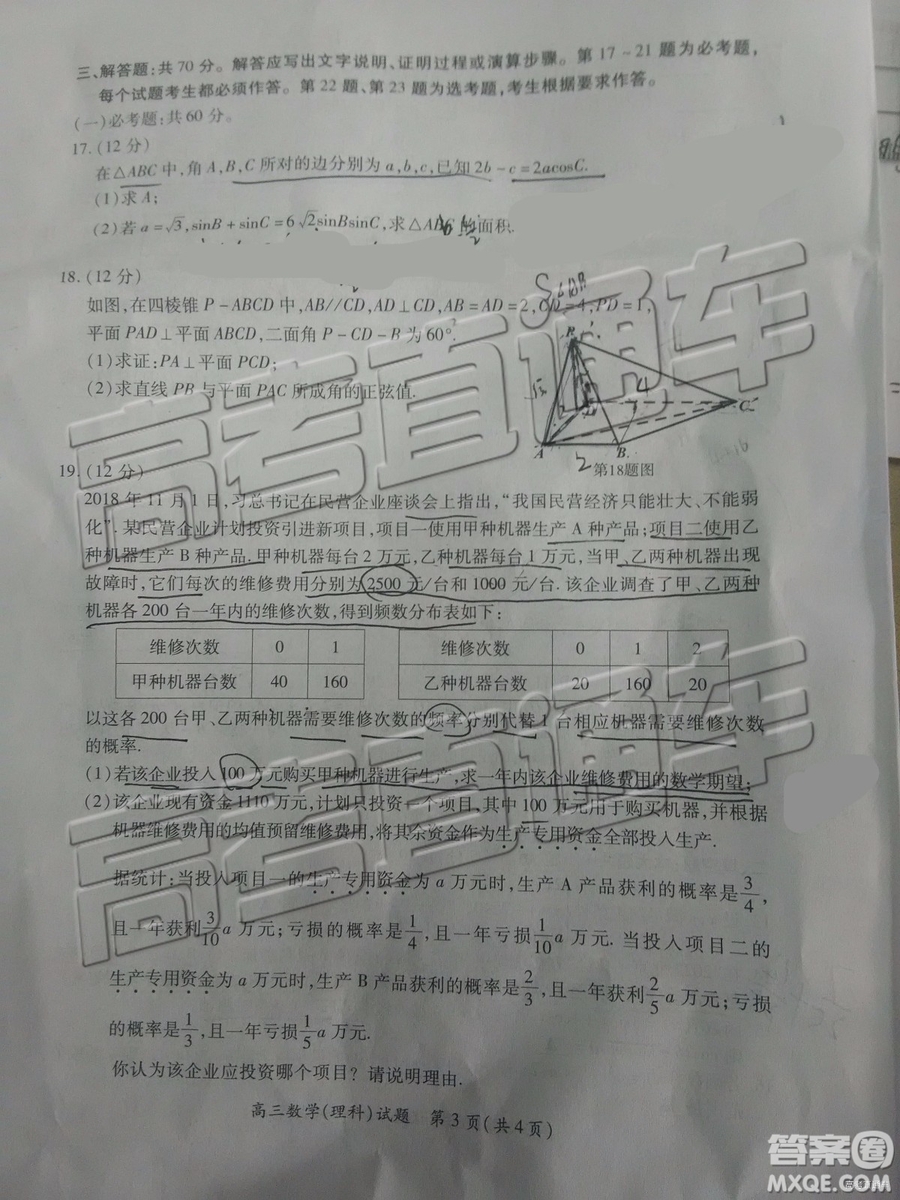 三、解答题:共70分。解答应写出文字说明、证明过程或演算步骤。第17~21题为必考题,
每个试题考生都必须作答。第22题、第23题为选考题,考生根据要求作答。
(一)必考题:共60分。
17.(12分)
在△ABC中,角A,B,C所对的边分别为a,b,c,已知2b-c=2acosC.
(1)求A;
(2)若a=√3,sinB+sinC=6√2sinBsinC,求△ABC的面积.
18.(12分)
如图,在四棱锥P-ABCD中,AB//CD,AD⊥CD,AB=AD=2,CD=4,PD=1,
平面PAD⊥平面ABCD,二面角P-CD-B为60°.
(1)求证:PA⊥平面PCD;
(2)求直线PB与平面PAC所成角的正弦值.
P
4
C
A
B
2
第18题图
19.(12分)
2018年11月1日,习总书记在民营企业座谈会上指出,“我国民营经济只能壮大、不能弱
化”.某民营企业计划投资引进新项目,项目一使用甲种机器生产A种产品;项目二使用乙
种机器生产B种产品.甲种机器每台2万元,乙种机器每台1万元,当甲、乙两种机器出现
故障时,它们每次的维修费用分别为2500元/台和1000元/台.该企业调查了甲、乙两种
机器各200台一年内的维修次数,得到频数分布表如下:
维修次数 0 1
甲种机器台数 40 160
维修次数 0 1 2
乙种机器台数 20 160 20
以这各200台甲、乙两种机器需要维修次数的频率分别代替1台相应机器需要维修次数
的概率.
(1)若该企业投入100万元购买甲种机器进行生产,求一年内该企业维修费用的数学期望;
(2)该企业现有资金1110万元,计划只投资一个项目,其中100万元用于购买机器,并根据
机器维修费用的均值预留维修费用,将其余资金作为生产专用资金全部投入生产.
据统计:当投入项目一的生产专用资金为a万元时,生产A产品获利的概率是3/4,
且一年获利3/10a万元;亏损的概率是1/4,且一年亏损1/10a万元.当投入项目二的
生产专用资金为a万元时,生产B产品获利的概率是2/3,且一年获利2/5a万元;亏损
的概率是1/3,且一年亏损1/5a万元.
你认为该企业应投资哪个项目?请说明理由.
高三数学(理科)试题 第3页(共4页)
高考直通车
高考直通车
答案圈
MXQE.COM